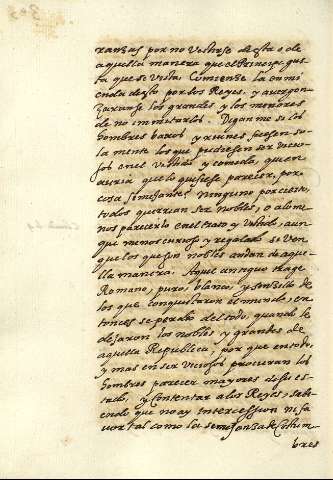 ranzas por no vestirse desta o de
aquella manera que el Principe gus
ta que se vista. Comienze la enmi
enda desto por los Reyes, y avergon
zaranse los grandes y los menores
de no immitarlos. Digan me si los
hombres baxos y ruines fuesen so
lamente los que pudiesen ser vicio
sos en el vestido y comida, quien
auria que lo quisiese parecer, por
cosa semejante? ninguno por cierto,
todos querrian ser nobles, o alome
nos parecerlo en el trato y vestido, aun
que menos curioso y regalado se ven
que los que son nobles andan de aque
lla manera. Aquel antiguo trage
Romano, puro, blanco, y senzillo de
los que conquistaron el mundo, en
tonces se perdio del todo, quando le
dejaron los nobles y grandes de
aquella Republica, por que en todo,
y mas en ser viciosos procuran los
hombres parecer mayores de su es
tado, y contentar a los Reyes, sabi
endo que no ay intercession ni fa
uor tal como la semejanza de costum
bres